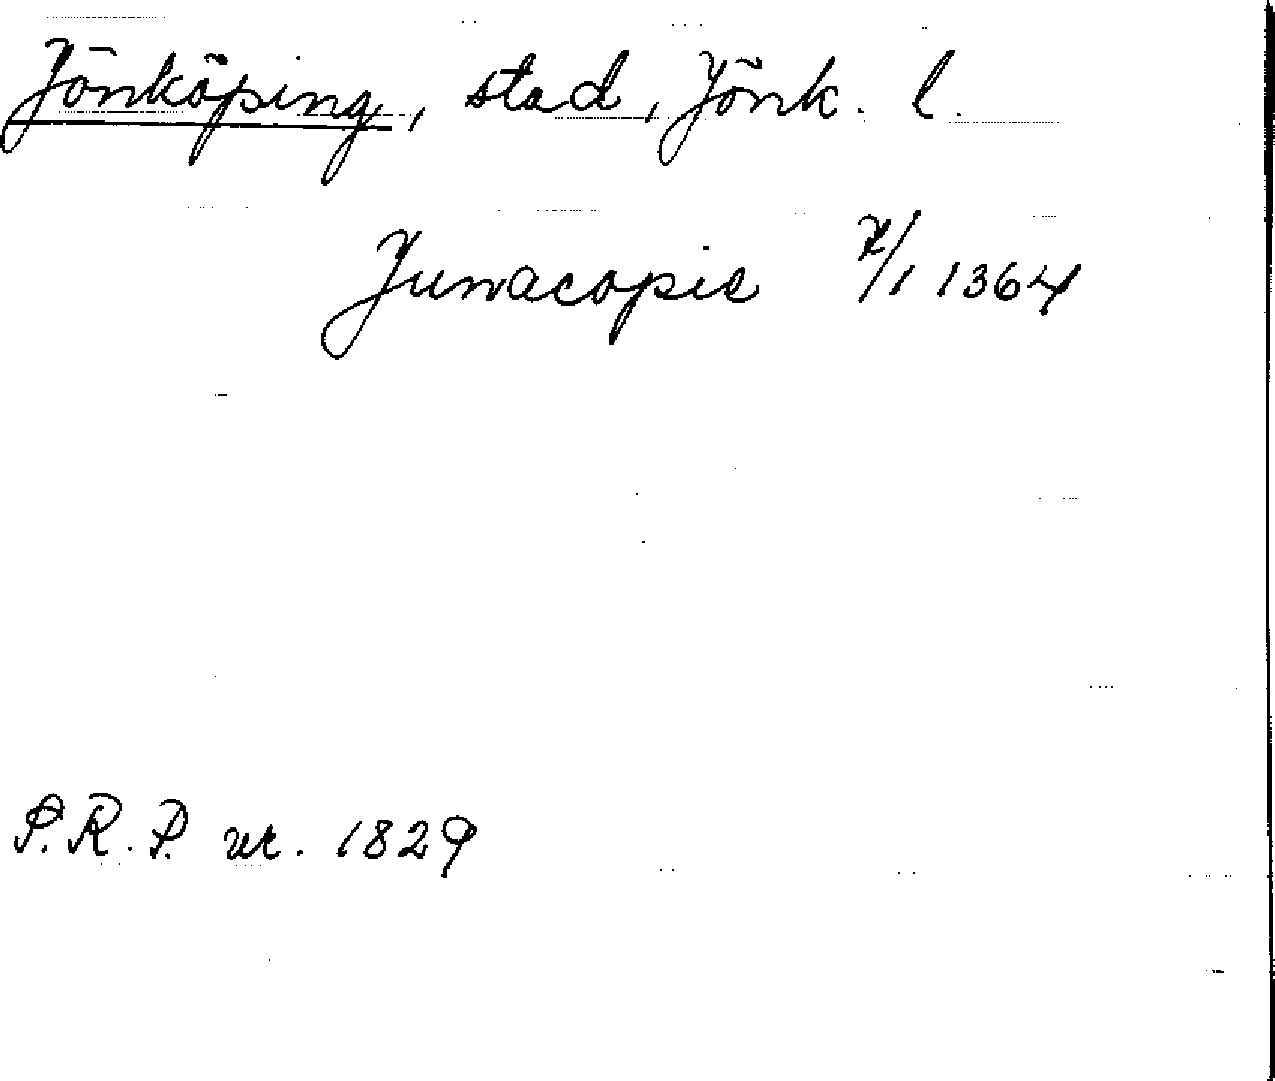 Jönköping, stad, Jönk. l.
Junacopie /1 1364
S.R.P. nr. 1829